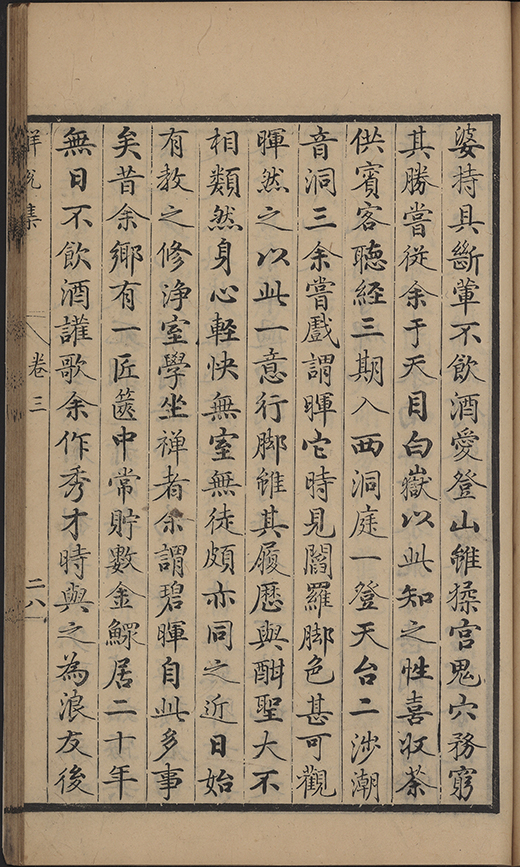 婆持具斷葷不飲酒愛登山雖猱宫鬼穴務窮
其勝嘗從余于天目白嶽以此知之性喜収茶
供賓客聽經三期入西洞庭一登天台二涉潮
音洞三余嘗戲謂暉它時見閻羅脚色甚可觀
暉然之以此一意行脚雖其履歷與酣聖大不
相類然身心輕快無室無徒頗亦同之近日始
有教之修浄室學坐禪者余謂碧暉自此多事
矣昔余鄉有一匠篋中常貯數金鰥居二十年
無日不飲酒讙歌余作秀才時與之為浪友後
卷三
二八